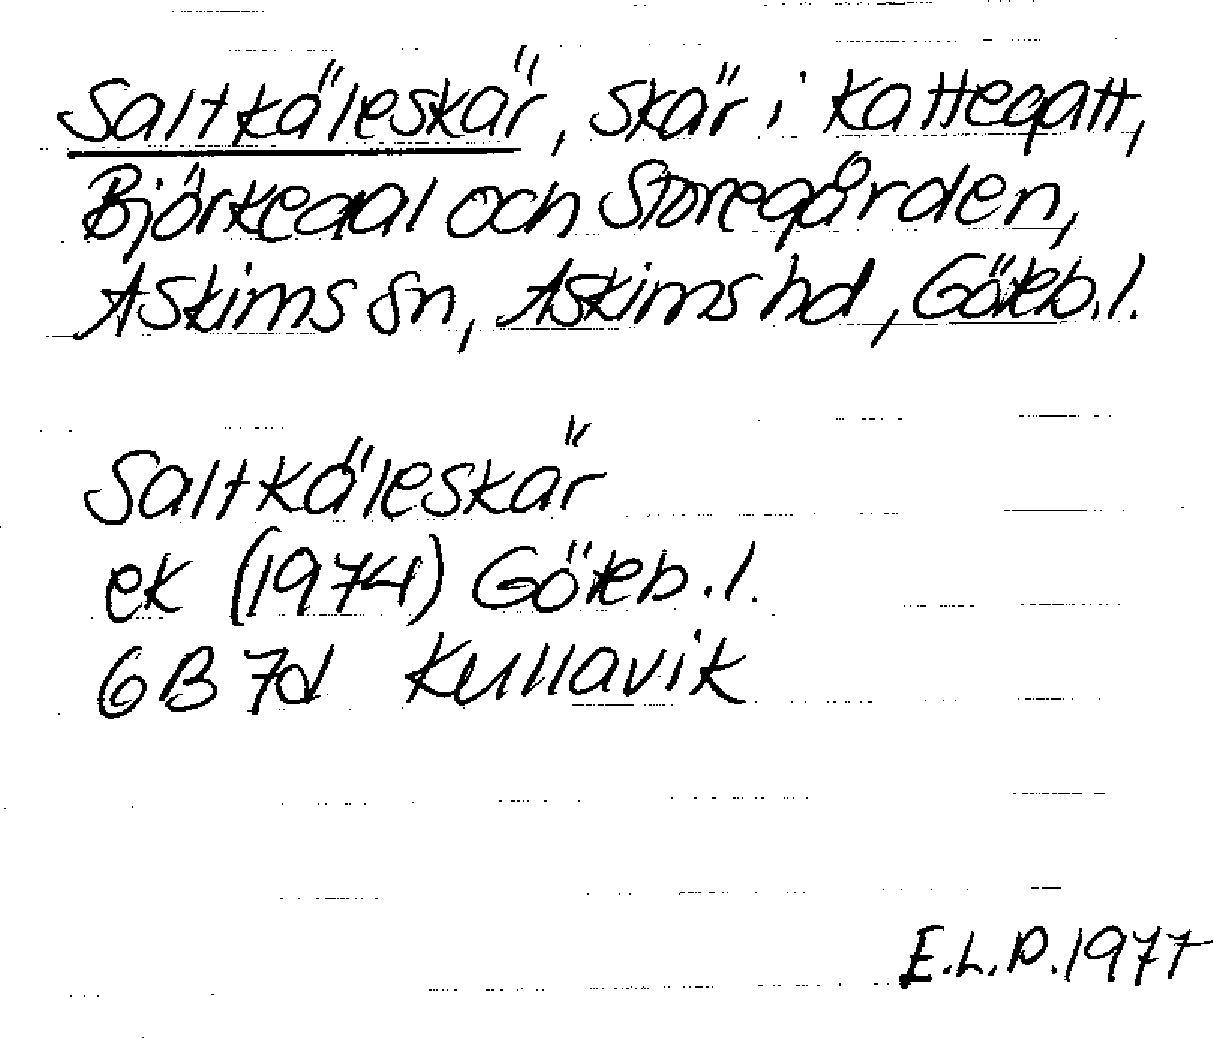 Saltkäleskär, skär i Kattegatt,
Björkedal och Storegården,
Askims sn, Askims hd, Göteb.l.
Saltkäleskär
ek (1974) Göteb.l.
6B 7d Kullavik
E.L.P. 1977